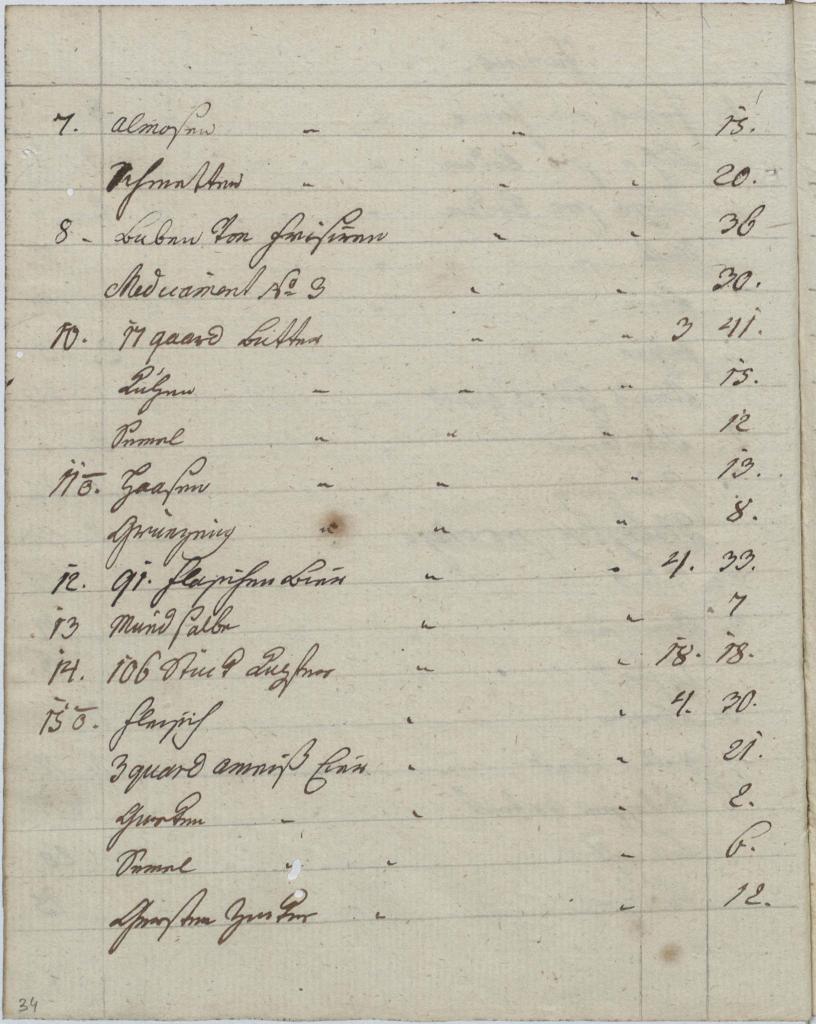 7. almosen " " 15.
Schmetten " " " 20.
8 - Buben Von Frisiren " " 36
Medicament No 3 " " 30.
10. 17 quard Butter " " 3 41.
" " " 15.
Semel " " " 12
11 Haasen " " " 13.
Grünzeug " " " 8.
12. 91. Flaschen Bier " " 4. 33.
13 Mund salbe " " 7
14. 106 Stück " " 18. 18.
15 Fleisch " " 4. 30.
3 quard ameiß Eier " " 21.
Gurken " " " 2.
Semel " " " 6.
Gersten Zucker " " 12.
34